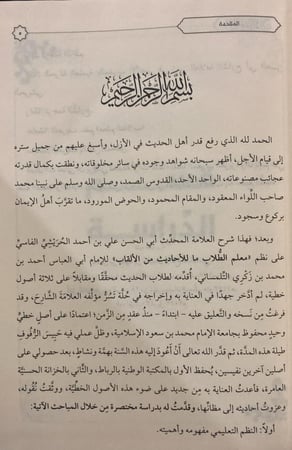 المقدمة
٥
بسم الله الرحمن الرحيم
الحمد لله الذي رفع قدر أهل الحديث في الأزل، وأسبغ عليهم من جميل ستره
إلى قيام الأجل، أظهر سبحانه شواهد وجوده في سائر مخلوقاته، ونطقت بكمال قدرته
عجائب مصنوعاته، الواحد الأحد، القدوس الصمد، وصلى الله وسلم على نبينا محمد
صاحب اللّواء المعقود، والمقام المحمود، والحوض المورود، ما تقرّب أهلُ الإيمان
بركوع وسجود.
وبعد؛ فهذا شرح العلامة المحدِّث أبي الحسن علي بن أحمد الحُرَيْشِيّ الفاسيّ
على نظم «معلم الطُّلاب ما للأحاديث من الألقاب» للإمام أبي العباس أحمد بن
محمد بن زكري التلمساني، أقدّمه لطلاب الحديث محقَّقًا ومقابلاً على ثلاثة أصول
خطية، لم أدّخر جهدًا في العناية به وإخراجه في حُلّة تسُرُّ مؤلِّفه العلامةَ الشَّارح، وقد
فرغتُ مِن نَسخه والتعليق عليه - ابتداءً - منذُ عِقد مِن الزَّمن؛ اعتمادًا على أصلٍ خطيٍّ
وحيدٍ محفوظ بجامعة الإمام محمد بن سعود الإسلامية، وظلَّ عملي فيه حَبِيسَ الرُّفوفِ
طيلة هذه المدّة، ثم قدَّر الله تعالى أنْ أَعُودَ إليه هذه السَّنة بهمّة ونشاطٍ، بعد حصولي على
أصلين آخرين نفيسين، يُحفظ الأول بالمكتبة الوطنية بالرباط، والثاني بالخزانة الحسنيَّة
العامرة، فأعدتُ العناية به مِن جديد على ضوء هذه الأصول الخطيَّة، ووثَّقتُ نُقوله،
وعزوتُ أحاديثه إلى مظانّها، وقدَّمتُ له بدراسة مختصرة مِن خلال المباحث الآتية:
أولاً: النظم التعليمي مفهومه وأهميته.